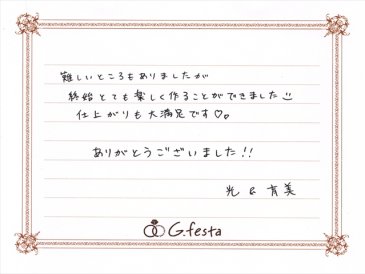 難しいところもありましたが
終始とても楽しく作ることができました☺
仕上がりも大満足です♡。
ありがとうございました!!
光 & 有美
G.festa